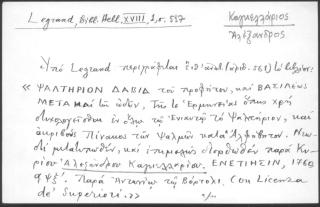 Legrand, Bibl. Hell. XVIII, 1, σ. 557
Καγκελλάριος
Ἀλέξανδρος
Ὑπό Legrand περιγράφεται
« ΨΑΛΤΗΡΙΟΝ ΔΑΒΙΔ τοῦ προφήτου, καὶ ΒΑΣΙΛΕΩΣ
ΜΕΤΑ τῶν ᾠδῶν, Τῆς τε Ἑρμηνείας ὅπως χρὴ
στιχολογεῖσθαι ἐν ὅλῳ τῷ Ἐνιαυτῷ τὸ Ψαλτήριον, καὶ
ἀκριβοῦς Πίνακος τῶν Ψαλμῶν κατὰ Ἀλφάβητον. Νεω-
στὶ μετατυπωθέν, καὶ ἐπιμελῶς διορθωθὲν παρὰ Κυ-
ρίου Ἀλεξάνδρου Καγκελλαρίου. ΕΝΕΤΙΗΣΙΝ, 1760
αψξ΄. Παρὰ Ἀντωνίῳ τῷ Βόρτολι. Con Licenza
de' Superiori. »